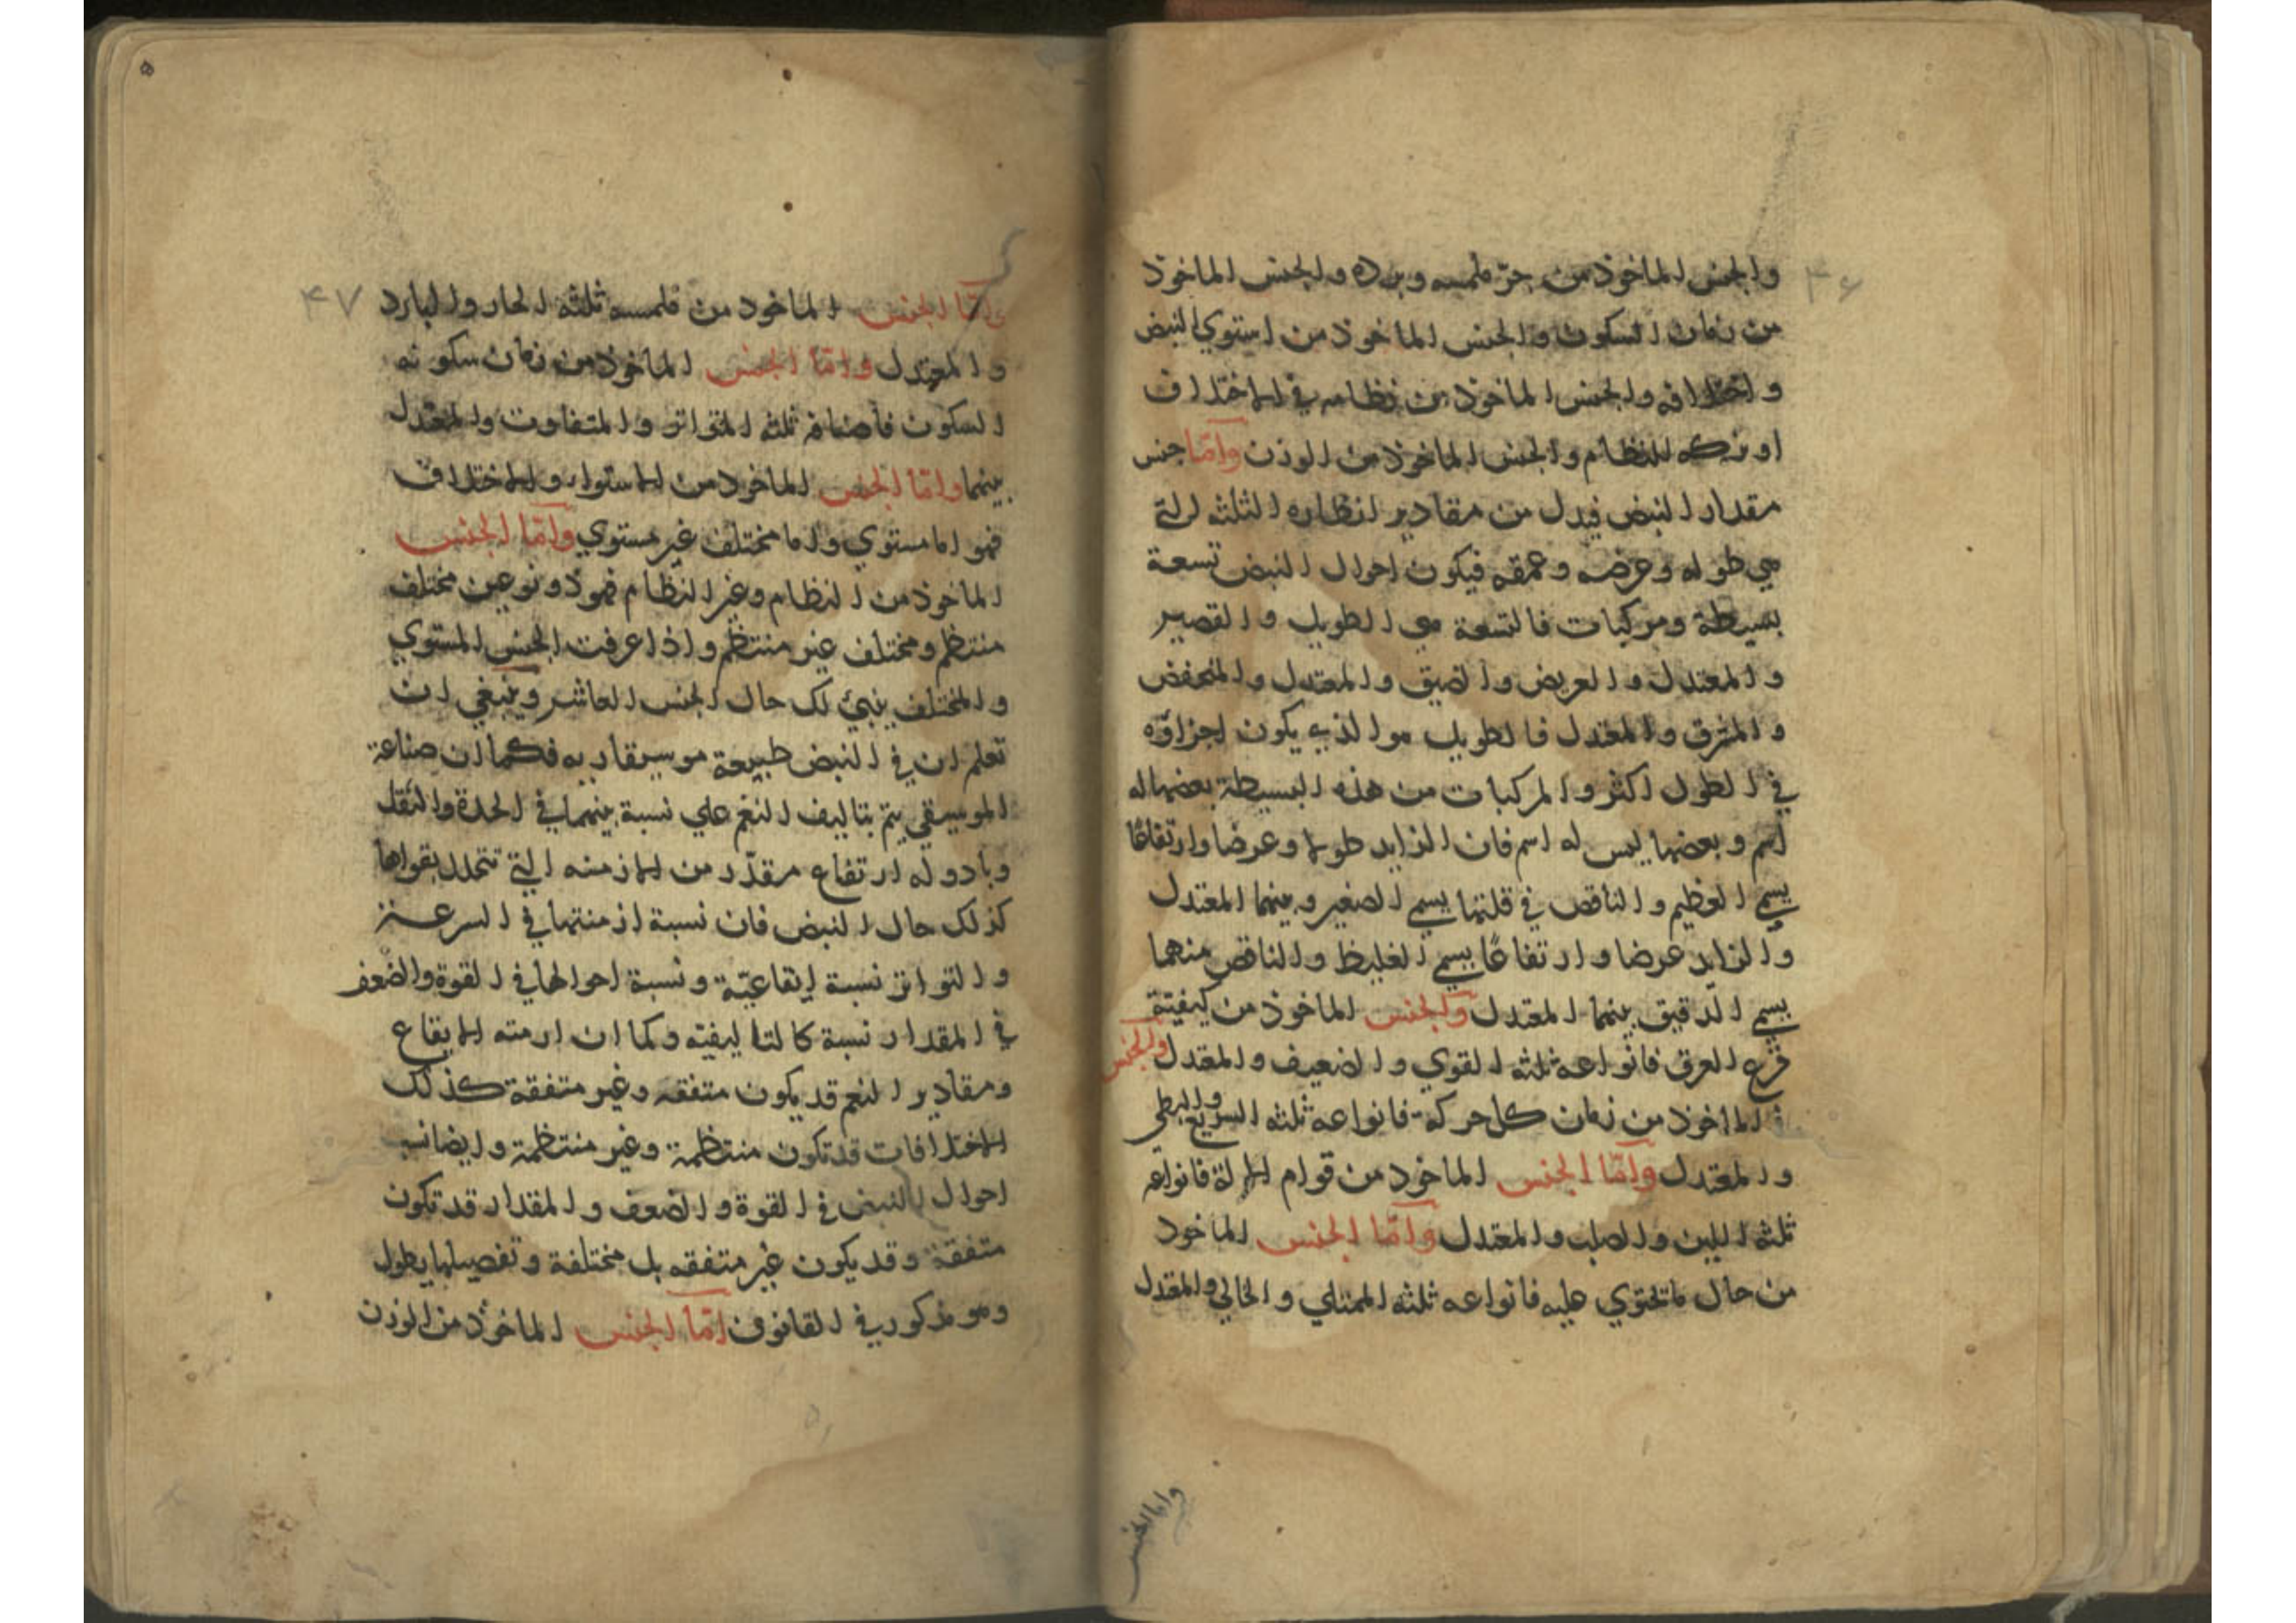 ۴۶
والجنس الماخوذ من حرّ ملمسه وبرده والجنس الماخوذ
من زمان السكون والجنس الماخوذ من استوي النبض
واختلافه والجنس الماخوذ من نظامه في الاختلاف
او تركه للنظام والجنس الماخوذ من الوزن وامّا جنس
مقدار النبض فيدل من مقادير اقطاره الثلثه التي
هي طوله وعرضه وعمقه فيكون احوال النبض تسعة
بسيطة ومركبات فالتسعة هي الطويل والقصير
والمعتدل والعريض والضيق والمعتدل والمنخفض
والمشرق والمعتدل فالطويل هو الذي يكون اجزاؤه
في الطول اكثر والمركبات من هذه البسيطة بعضها له
اسم وبعضها ليس له اسم فان الزايد طولا وعرضا وارتفاعًا
يسمي العظيم والناقص في قلتها يسمي الصغير وبينهما المعتدل
والزايد عرضا وارتفاعًا يسمي الغليظ والناقص منهما
يسمي الدقيق بينهما المعتدل والجنس الماخوذ من كيفيته
قرع العرق فانواعه ثلثه القوي والضعيف والمعتدل والجنس
الماخوذ من زمان كل حركة فانواعه ثلثه السريع والبطي
والمعتدل وامّا الجنس الماخود من قوام الالة فانواعه
ثلثه اللين والصلب والمعتدل وامّا الجنس الماخود
من حال ما تحتوي عليه فانواعه ثلثه الممتلي والخالي والمعتدل
واما الجنس
۴۷
وامّا الجنس الماخود من ملمسه ثلثه الحار والبارد
والمعتدل وامّا الجنس الماخوذ من زمان سكونه
السكون فاصنافه ثلثه المتواتر والمتفاوت والمعتدل
بينهما وامّا الجنس الماخود من الاستواء والاختلاف
فهو اما مستوي واما مختلف غير مستوي وامّا الجنس
الماخوذ من النظام وغير النظام فهو ذو نوعين مختلف
منتظم ومختلف غير منتظم واذا عرفت الجنس المستوي
والمختلف ينبئ لك حال الجنس العاشر وينبغي ان
تعلم ان في النبض طبيعة موسيقاريه فكما ان صناعة
الموسيقي يتم بتاليف النغم علي نسبة بينهما في الحدة والثقل
وبادوله ارتفاع مقدّر من الازمنه التي تتخلل بقواها
كذلك حال النبض فان نسبة ازمنتها في السرعة
والتواتر نسبة ايقاعيّة ونسبة احوالها في القوة والضعف
في المقدار نسبة كالتاليفيّه وكما ان ازمنه الايقاع
ومقادير النغم قد يكون متفقه وغير متفقة كذلك
الاختلافات قد تكون منتظمة وغير منتظمة وايضا نسب
احوال النبض في القوة والضعف والمقدار قد تكون
متفقة وقد يكون غير متفقه بل مختلفة وتفصيلها يطول
وهو مذكور في القانون امّا الجنس الماخوذ من الوزن